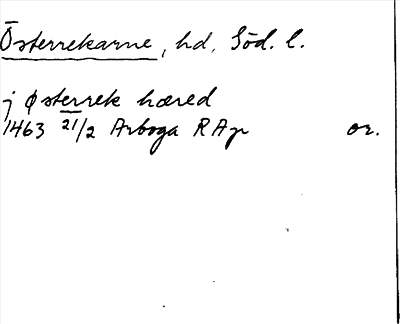 Österrekarne, hd, Söd. l.
j Østerrek hæred
1463 21/2 Arboga RAp or.